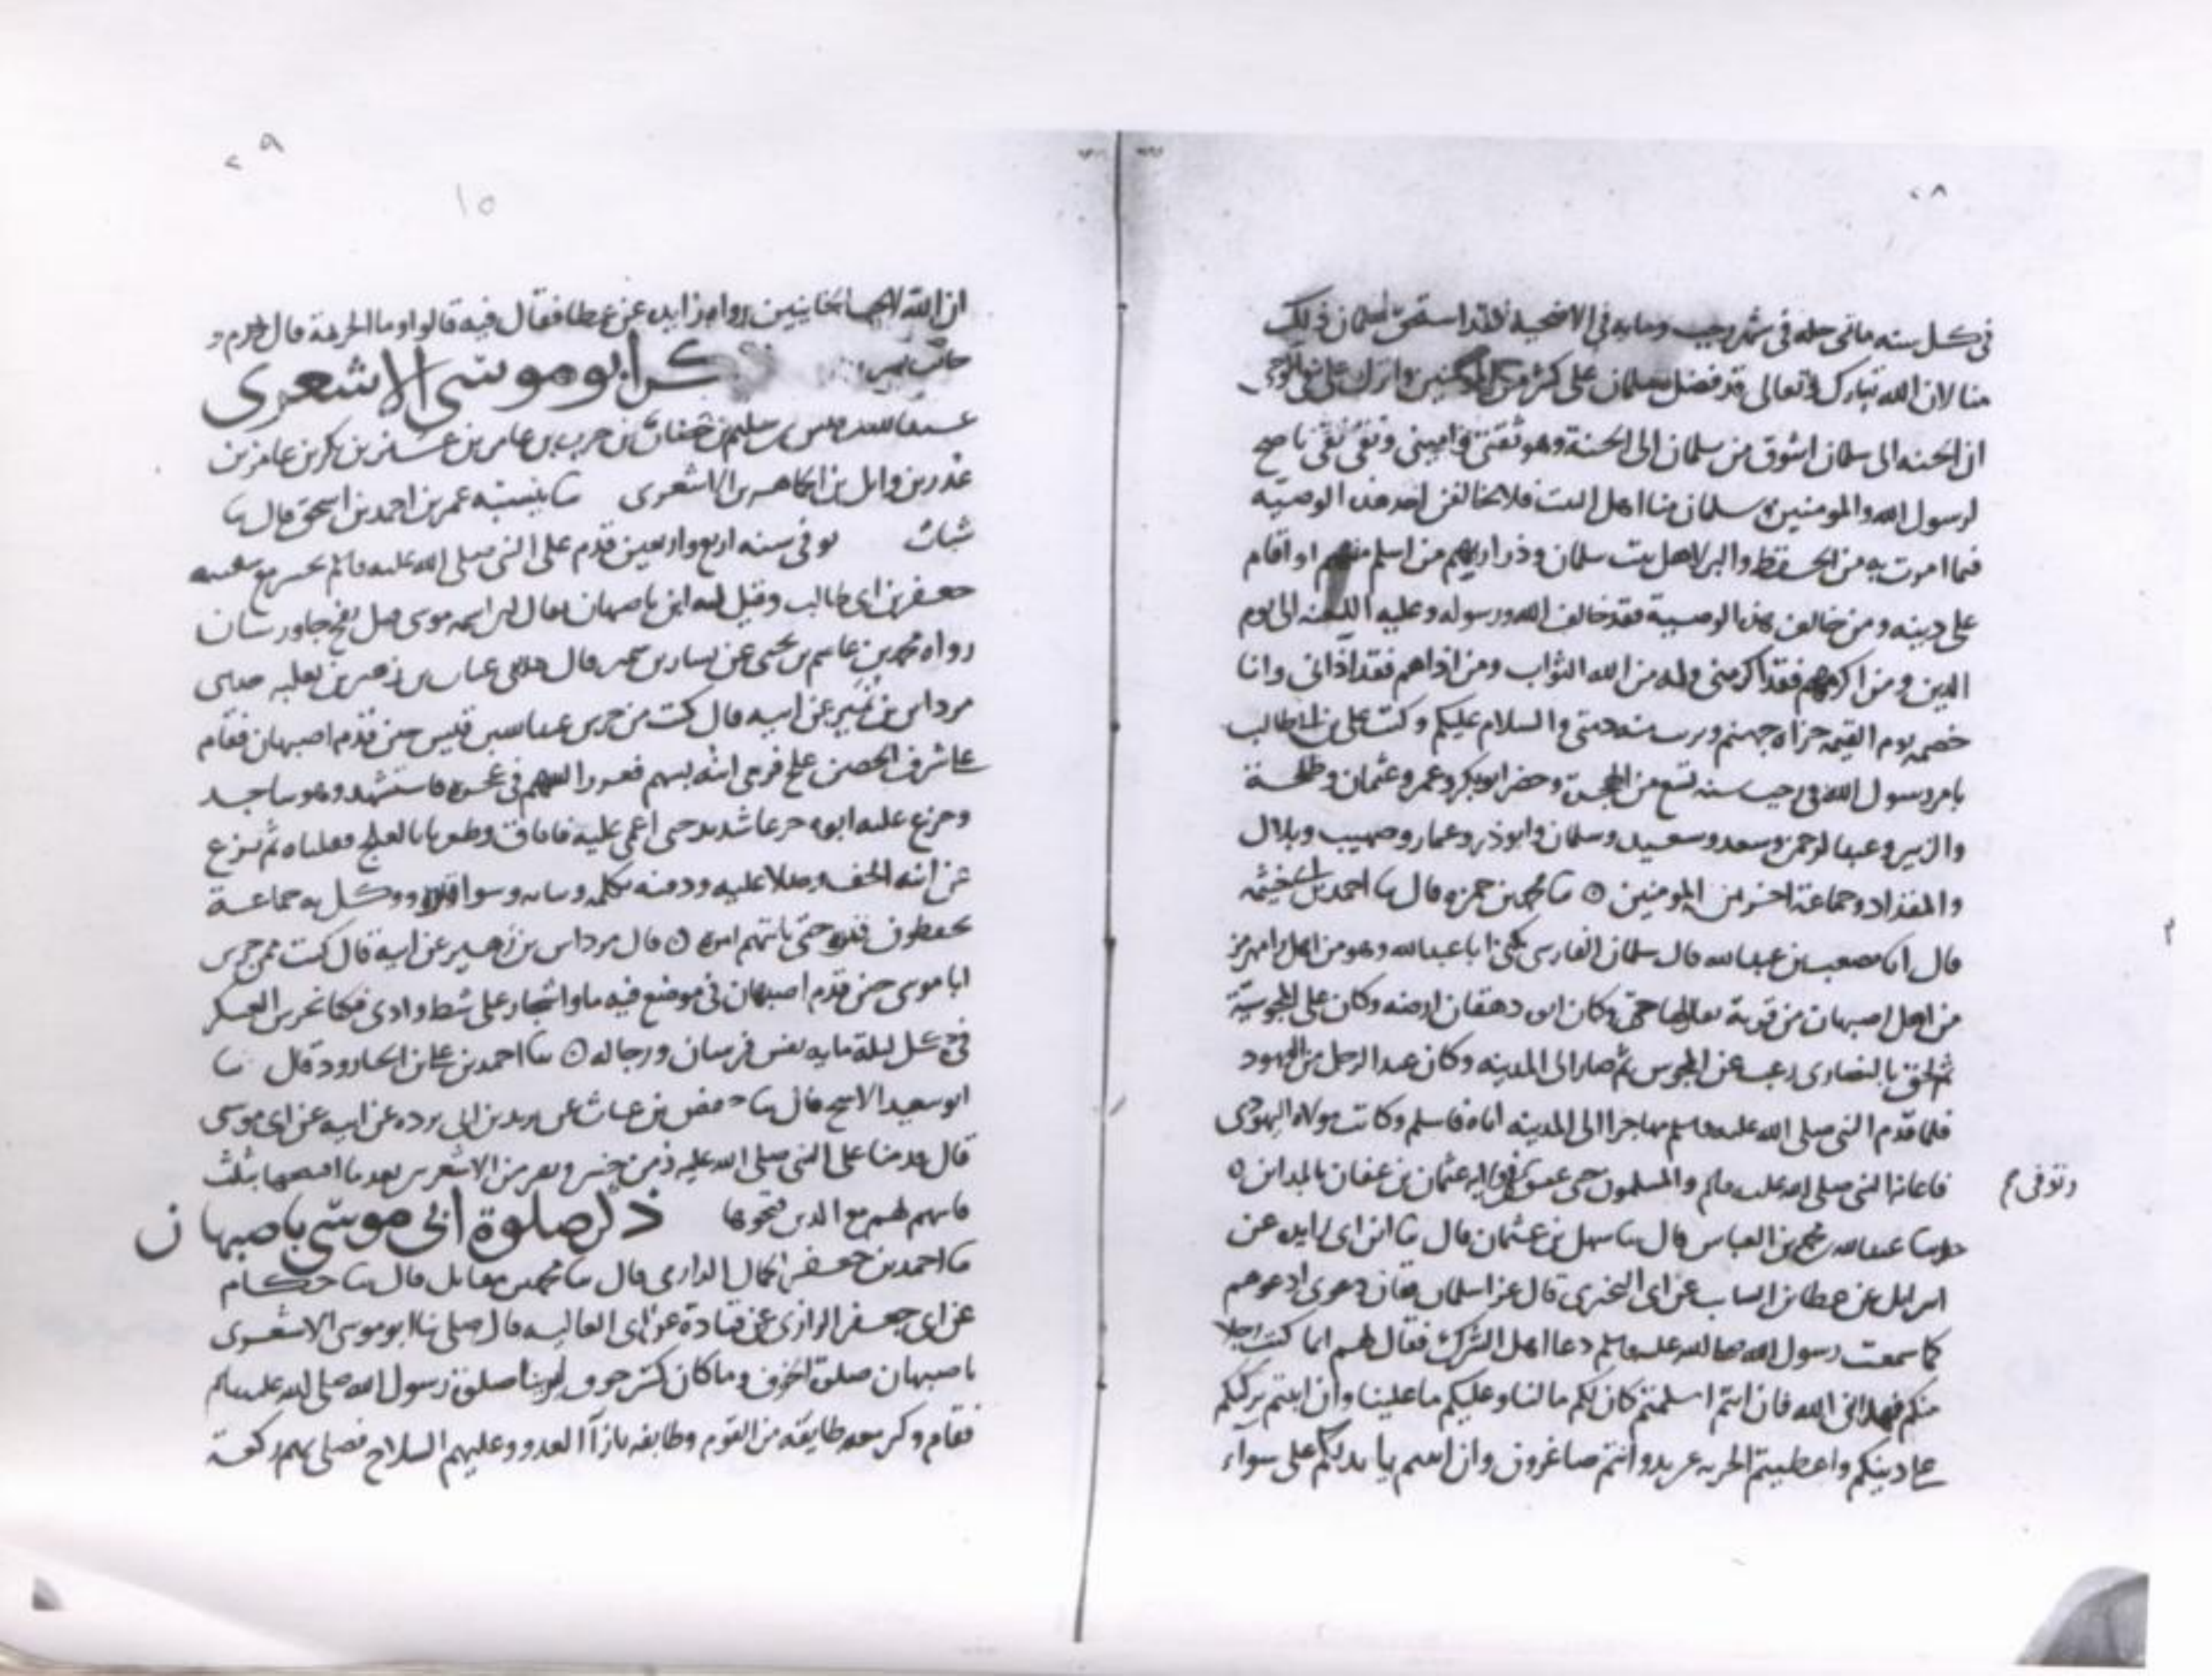 ٢٨
في كل سنه مائتي حله في شهر رجب ومايه في الاضحية فقد استحق سلمان ذلك
منا لان الله تبارك وتعالى قد فضل سلمان على كثير من المومنين وانزل على في الوحي
ان الجنه الى سلمان اشوق من سلمان الى الجنة وهو ثقتي واميني وتقي نقي ناصح
لرسول الله والمومنين سلمان منا اهل البيت فلا يخالفن احد هذه الوصيه
فيما امرت به من الحفظ والبر لاهل بيت سلمان وذراريهم من اسلم منهم او اقام
على دينه ومن خالف هذه الوصية فقد خالف الله ورسوله وعليه اللعنه الى يوم
الدين ومن اكرمهم فقد اكرمني وله من الله الثواب ومن اذاهم فقد آذاني وانا
خصمه يوم القيمه جزاه جهنم وبرت منه ذمتي والسلام عليكم وكتب علي بن ابي طالب
بامر رسول الله في رجب سنه تسع من الهجرة وحضر ابو بكر وعمر وعثمان وطلحة
والزبير وعبد الرحمن وسعد وسعيد وسلمان وابو ذر وعمار وصهيب وبلال
والمقداد وجماعة اخر من المومنين ٥ نا محمد بن حمزه قال نا احمد بن ابي خيثمه
قال انا مصعب بن عبد الله قال سلمان الفارسي يكنى ابا عبد الله وهو من اهل رامهرمز
من اهل اصبهان من قرية يقال لها جي وكان ابن دهقان ارضه وكان على المجوسية
ثم لحق بالنصارى رغب عن المجوس ثم صار الى المدينه وكان عبدا لرجل من اليهود
فلما قدم النبي صلى الله عليه وسلم مهاجرا الى المدينه اتاه فاسلم وكاتب مولاه اليهودي
فاعانه النبي صلى الله عليه وسلم والمسلمون حتى عتق في ولايه عثمان بن عفان بالمداين ٥
وتوفي
حدثنا عبد الله بن محمد بن العباس قال نا سهل بن عثمان قال نا ابن ابي زايده عن
اسرايل عن عطا بن السايب عن ابي البختري قال غزا سلمان فقال دعوني ادعوهم
كما سمعت رسول الله صلى الله عليه وسلم دعا اهل الشرك فقال لهم انما كنت رجلا
منكم فهداني الله فان انتم اسلمتم كان لكم ما لنا وعليكم ما علينا وان ابيتم تركتكم
على دينكم واعطيتم الجزيه عن يد وانتم صاغرون وان ابيتم نابذتكم على سوآء
٢٩
١٥
ان الله لا يحب الخاينين رواه زايده عن عطا فقال فيه قالوا وما الجزية قال درم و
ذكر ابو موسى الاشعري
عبد الله بن قيس بن سليم بن حضار بن حرب بن عامر بن عنز بن بكر بن عامر بن
عذر بن وايل بن الجماهر بن الاشعري نا بنسبته عمر بن احمد بن اسحق قال نا
شباب توفي سنه اربع واربعين قدم على النبي صلى الله عليه وسلم بخيبر مع سفينه
جعفر بن ابي طالب وقيل له ابن باصبهان يقال له ابراهيم بن موسى
رواه محمد بن عاصم بن يحيى عن يسار بن قال حدثني عباس بن زهير بن ثعلبه حدثني
مرداس بن نمير عن ابيه قال كنت من حرس عبد الله بن قيس حين قدم اصبهان فقام
فاشرف الحصن علج فرمى ابنه بسهم السهم في عجزه فاستشهد وهو ساجد
وجزع عليه ابوه جزعا شديدا حتى اغمي عليه فافاق وظفرنا بالعلج فقتلناه ثم نزع
عن ابنه الخف وصلا عليه ودفنه بكلمه وثيابه وسوا قبره ووكل به جماعة
يحفظون قبره حتى ياتيهم امره ٥ قال مرداس بن زهير عن ابيه قال كنت ممن حرس
ابا موسى حين قدم اصبهان في موضع فيه ما واشجار على شط وادي فكنا نحرس العسكر
في كل ليلة مايه نفس فرسان ورجاله ٥ نا احمد بن علي بن الجارود قال نا
ابو سعيد الاشج قال نا حفص بن غياث عن بريد بن ابي برده عن ابيه عن ابي موسى
قال قدمنا على النبي صلى الله عليه ونفر من الاشعريين بعدما افتتحها بثلث
فاسهم لهم مع الذين فتحوها ذكر صلوة ابي موسى باصبهان
نا احمد بن جعفر الجمال الداري قال نا محمد بن مقاتل قال نا حكام
عن ابي جعفر الرازي عن قتادة عن ابي العاليه قال صلى بنا ابو موسى الاشعري
باصبهان صلوة الخوف وما كان كثير خوف ليرينا صلوة رسول الله صلى الله عليه وسلم
فقام وكبر معه طايفة من القوم وطايفه بازآ العدو وعليهم السلاح فصلى بهم ركعة